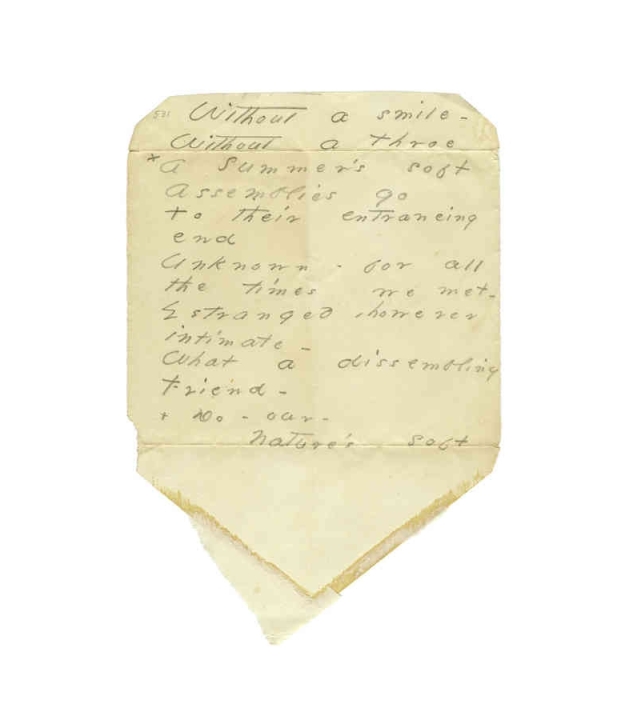 Without a smile -
Without a throe
+ A Summer's soft
Assemblies go
to their entrancing
end
Unknown - for all
the times we met -
Estranged, however
intimate -
What a dissembling
Friend -
+ Do - our -
Nature's soft